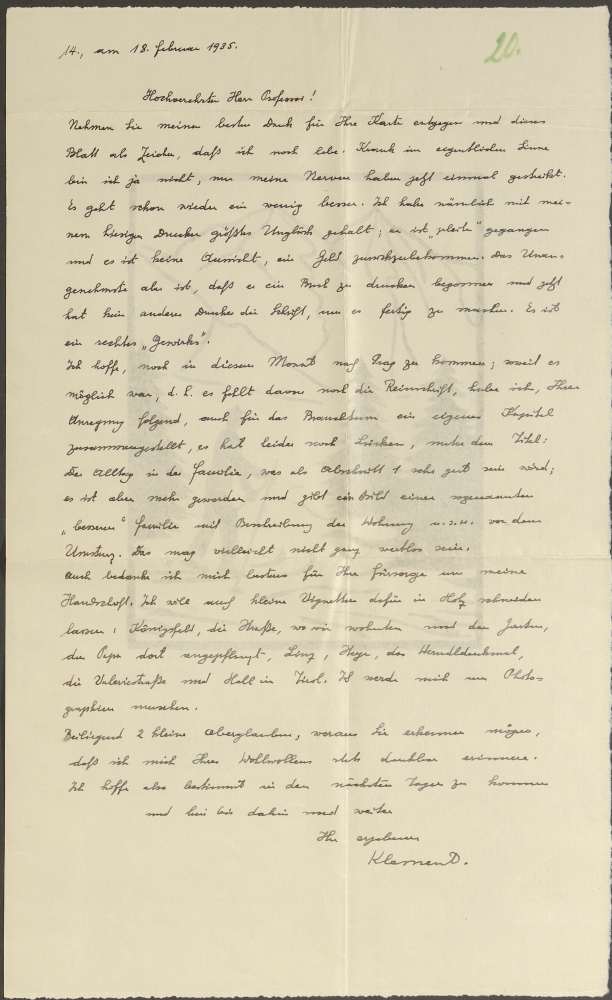 14., am 18. Februar 1935.
20.
Hochverehrter Herr Professor!
Nehmen Sie meinen besten Dank für Ihre Karte entgegen und dieses
Blatt als Zeichen, daß ich noch lebe. Krank im eigentlichen Sinne
bin ich ja nicht, nur meine Nerven haben jetzt einmal gestreikt.
Es geht schon wieder ein wenig besser. Ich habe nämlich mit mei-
nem hiesigen Drucker größtes Unglück gehabt; er ist „pleite" gegangen
und es ist keine Aussicht, ein Geld zurückzubekommen. Das Unan-
genehmste aber ist, daß er ein Buch zu drucken begonnen und jetzt
hat kein anderer Drucker die Schrift, um es fertig zu machen. Es ist
ein rechtes „Gewirks".
Ich hoffe, noch in diesem Monat nach Prag zu kommen; soweit es
möglich war, d. h. es fehlt davon noch die Reinschrift, habe ich, Ihrer
Anregung folgend, auch für das Brauchtum ein eigenes Kapitel
zusammengestellt, es hat leider noch Lücken, unter dem Titel:
Der Alltag in der Familie, was als Abschnitt 1 sehr gut sein wird;
es ist aber mehr geworden und gibt ein Bild einer sogenannten
„besseren" Familie mit Beschreibung der Wohnung u.s.w. vor dem
Umsturz. Das mag vielleicht nicht ganz wertlos sein.
Auch bedanke ich mich bestens für Ihre Fürsorge um meine
Handschaft. Ich will auch kleine Vignetten dafür in Holz schneiden
lassen: Königsfeld, die Straße, wo wir wohnten und den Garten,
den Papa dort angepflanzt, Linz, Steyr, das Denkmal,
die Valeriestraße und Hall in Tirol. Ich werde mich um Photo-
graphien umsehen.
Beiliegend 2 kleine Aberglauben, woraus Sie erkennen mögen,
daß ich mich Ihres Wohlwollens stets dankbar erinnere.
Ich hoffe also bestimmt in den nächsten Tagen zu kommen
und bin bis dahin und weiter
Ihr ergebener
Klement D.